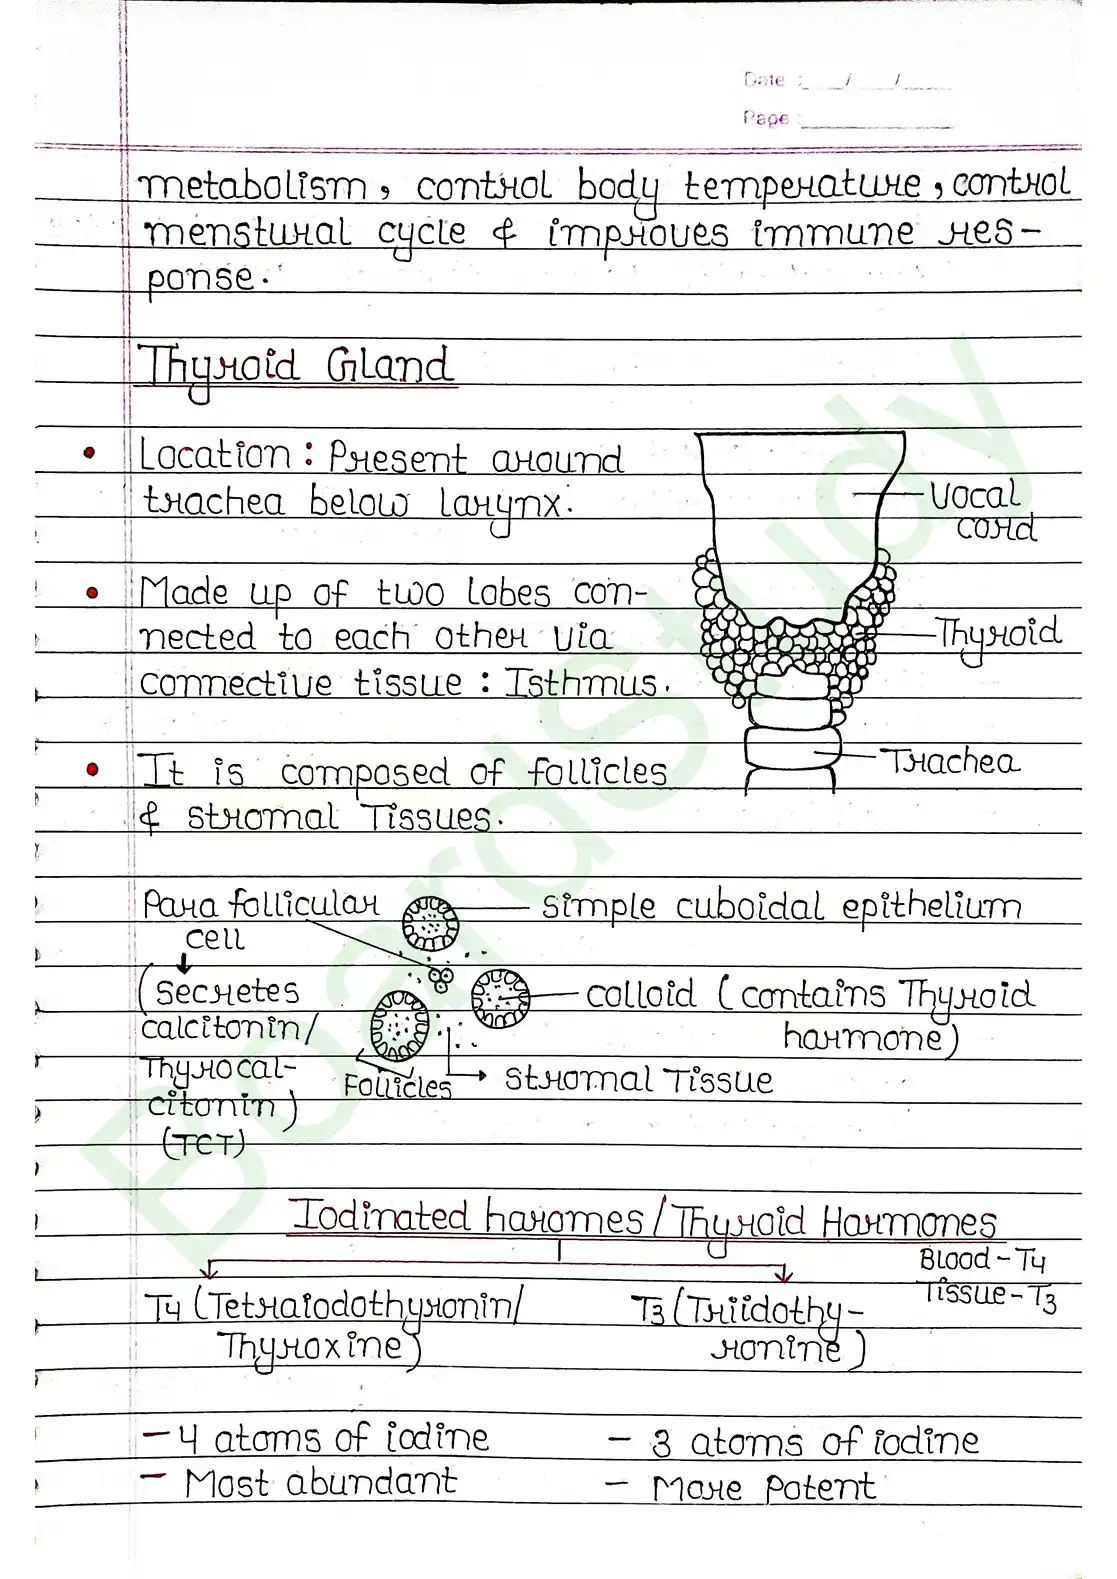 Date : ___/___/____
Page : ____________
metabolism, control body temperature, control
menstural cycle & improves immune res-
ponse.
Thyroid Gland
• Location : Present around
trachea below larynx.
Vocal
cord
• Made up of two lobes con-
nected to each other via
connective tissue : Isthmus.
Thyroid
• It is composed of follicles
& stromal Tissues.
Trachea
Para follicular
cell
simple cuboidal epithelium
(secretes
calcitonin/
Thyrocal-
citonin)
(TCT)
colloid (contains Thyroid
hormone)
Follicles
stromal Tissue
Iodinated haromes / Thyroid Hormones
Blood - T4
Tissue - T3
T4 (Tetraiodothyronin/
Thyroxine)
T3 (Triidothy-
ronine)
- 4 atoms of iodine
- Most abundant
- 3 atoms of iodine
- More Potent
BoardStudy